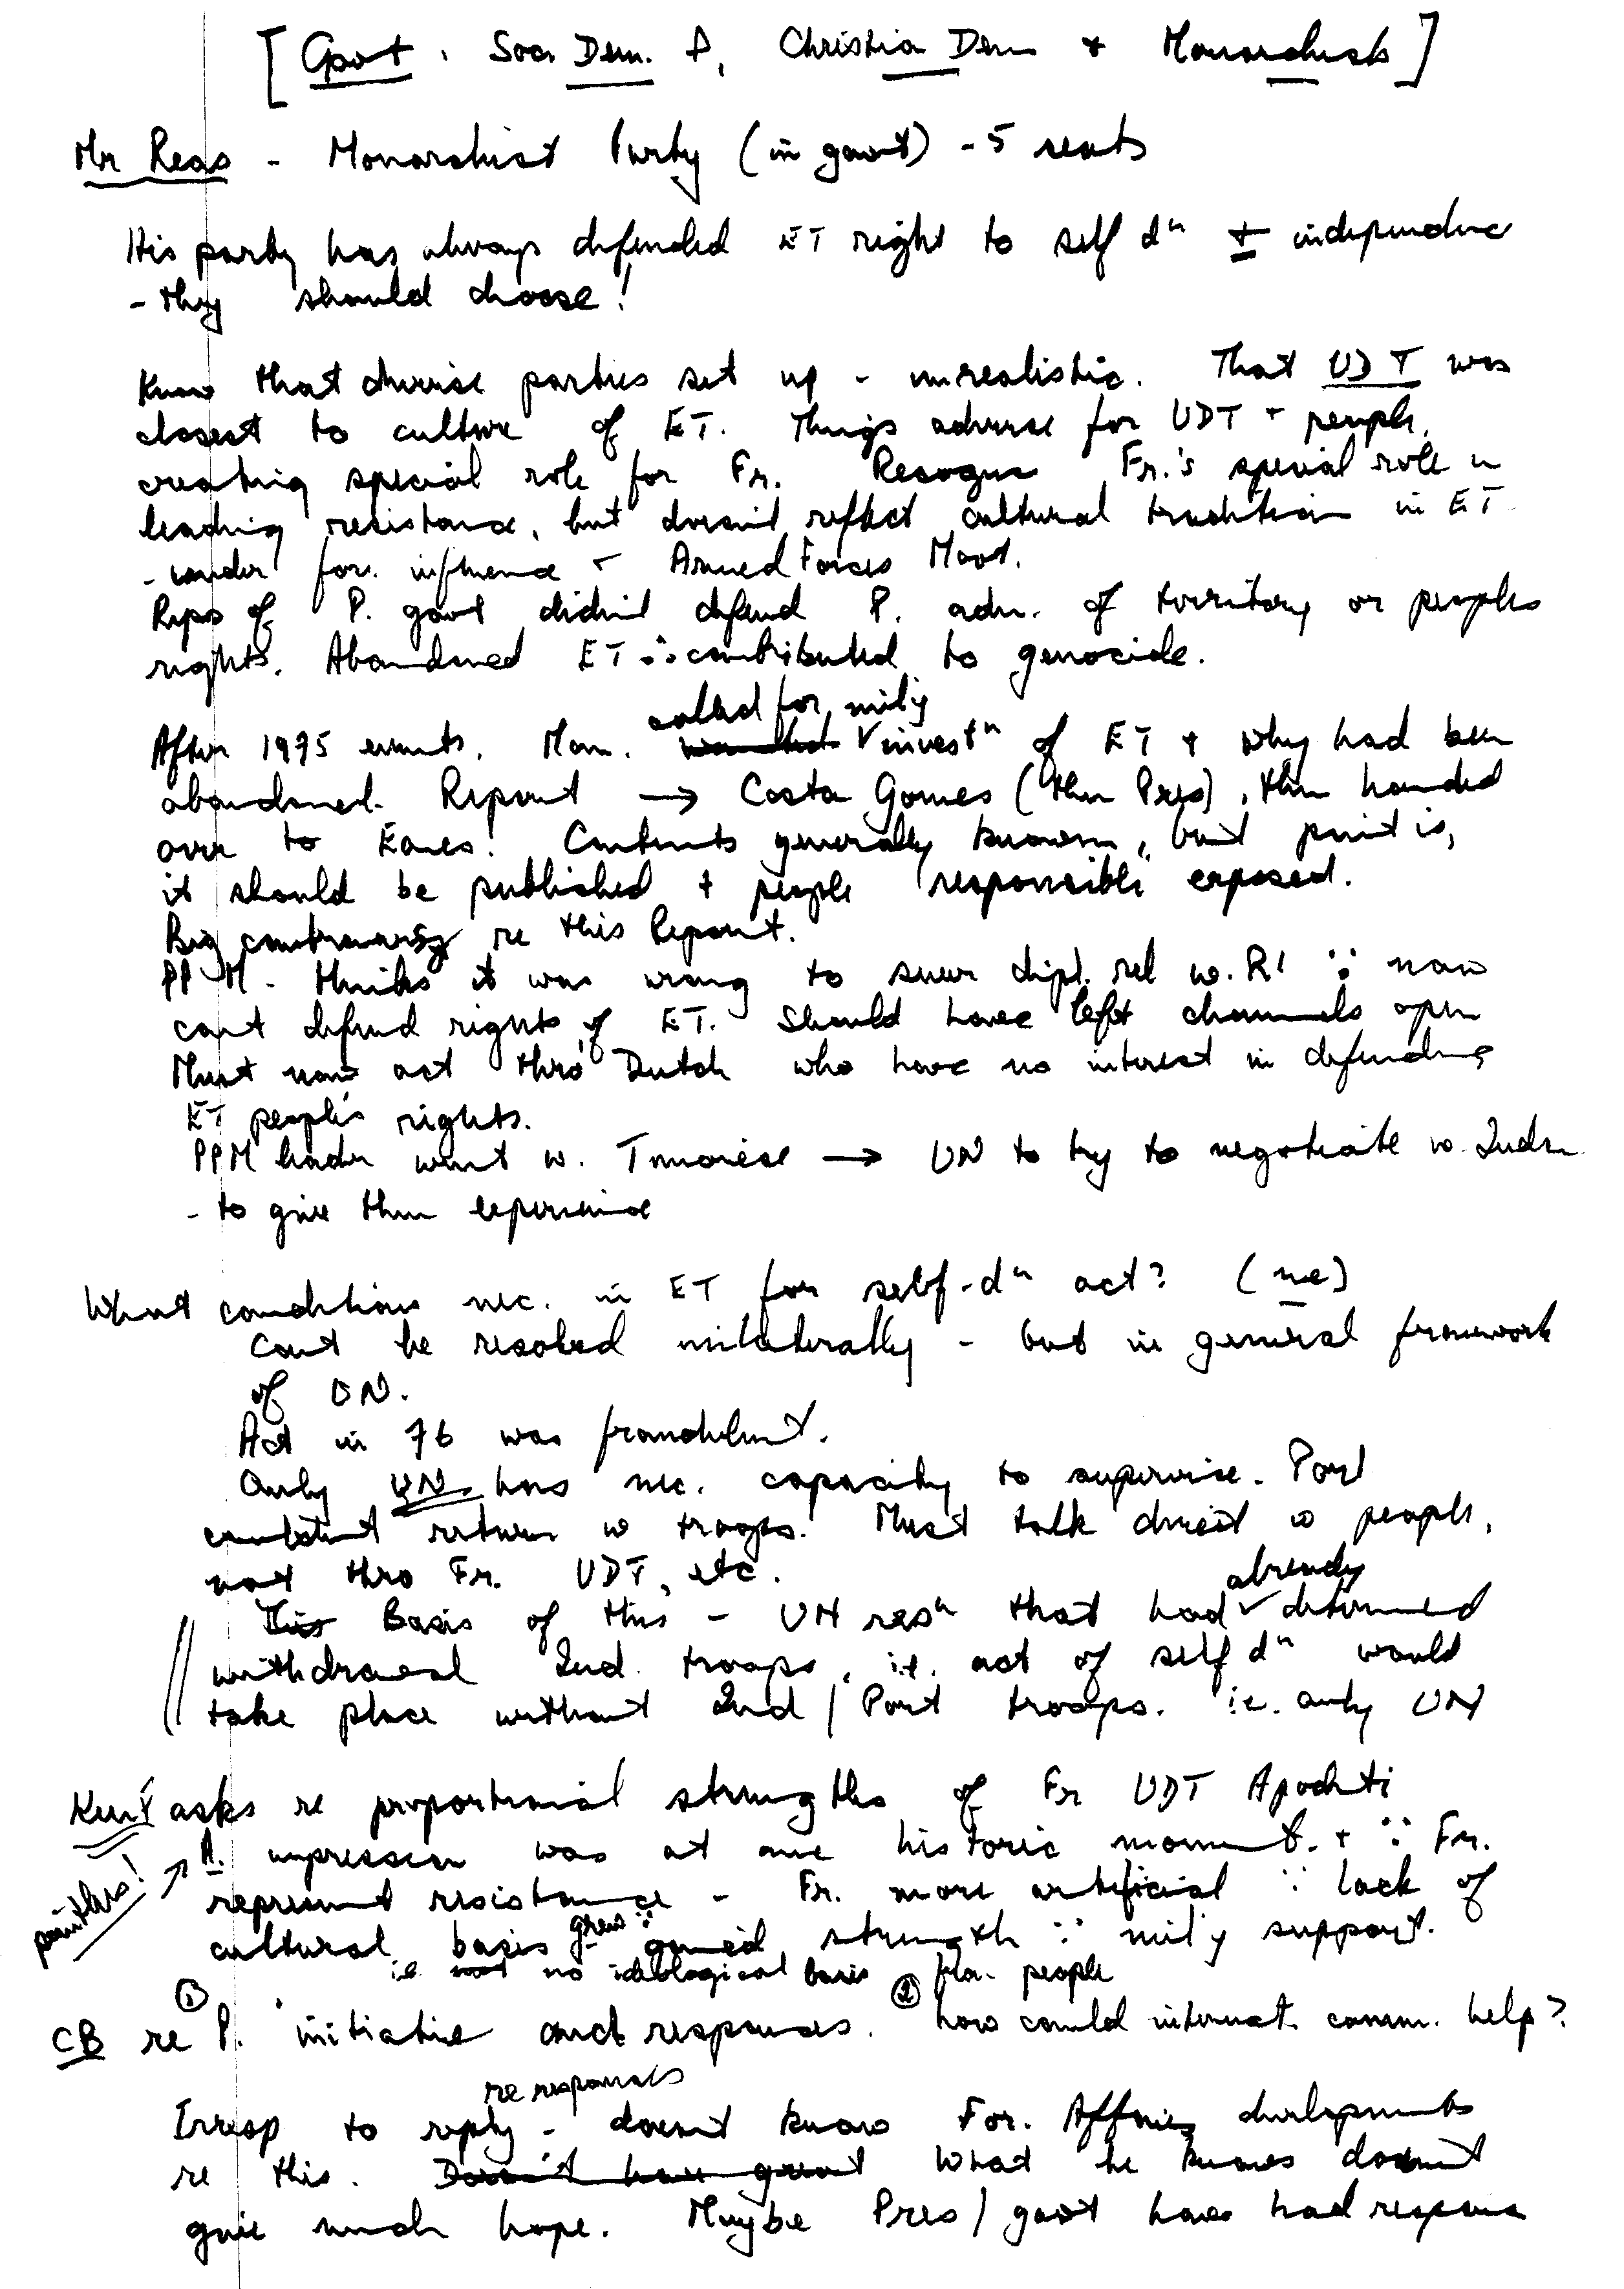 [Govt. Soc. Dem. P, Christia Dem + Monarchists]
Mr Reas - Monarchist Party (in govt) - 5 seats
His party has always defended ET right to self dn + independence
- they should choose!
Know that diverse parties set up - unrealistic. That UDT was
closest to culture of ET. Things adverse for UDT + people,
creating special role for Fr. Recognse Fr.'s special role in
leading resistance, but doesn't reflect cultural tradition in ET
- under for. influence + Armed Forces Movt.
Reps of P. govt didn't defend P. adm. of territory or peoples
rights. Abandoned ET ∴ contributed to genocide.
called for mil'y
After 1975 events, Mon. wanted V invest'n of ET + why had been
abandoned. Report → Costa Gomes (then Pres), then handed
over to Eanes! Contents generally known, but point is,
it should be published + people "responsible" exposed.
Big controversy re this Report.
PPM - thinks it was wrong to sever dipl. rel w. RI ∵ now
can't defend rights of ET. Should have left channels open
Must now act thro' Dutch who have no interest in defending
ET people's rights.
PPM leader went w. Timorese → UN to try to negotiate w. Indon
- to give them experience
What conditions nec. in ET for self-dn act? (me)
Can't be resolved unilaterally - but in general framework
of UN.
Act in 76 was fraudulent.
Only UN has nec. capacity to supervise. Port
couldn't return w troops. Must talk direct w people,
not thro Fr. UDT, etc.
already
This Basis of this - UN resn that had ✓ determined
withdrawal Ind. troops, i.e. act of self dn would
take place without Ind / Port troops. i.e. only UN
Kurt asks re proportional strengths of Fr UDT Apodeti
A. impression was at one historic moment. + ∵ Fr.
pointless! →
represent resistance - Fr. more artificial ∵ lack of
cultural basis grew ∵ gained strength ∵ mil'y support.
i.e. not no ideological basis for people
CB re ① P. initiative and responses. ② how could internat. comm. help?
re responses
Irresp to reply - doesn't know For. Affairs developments
re this. Doesn't have great What he knows doesn't
give much hope. Maybe Pres / govt have had response